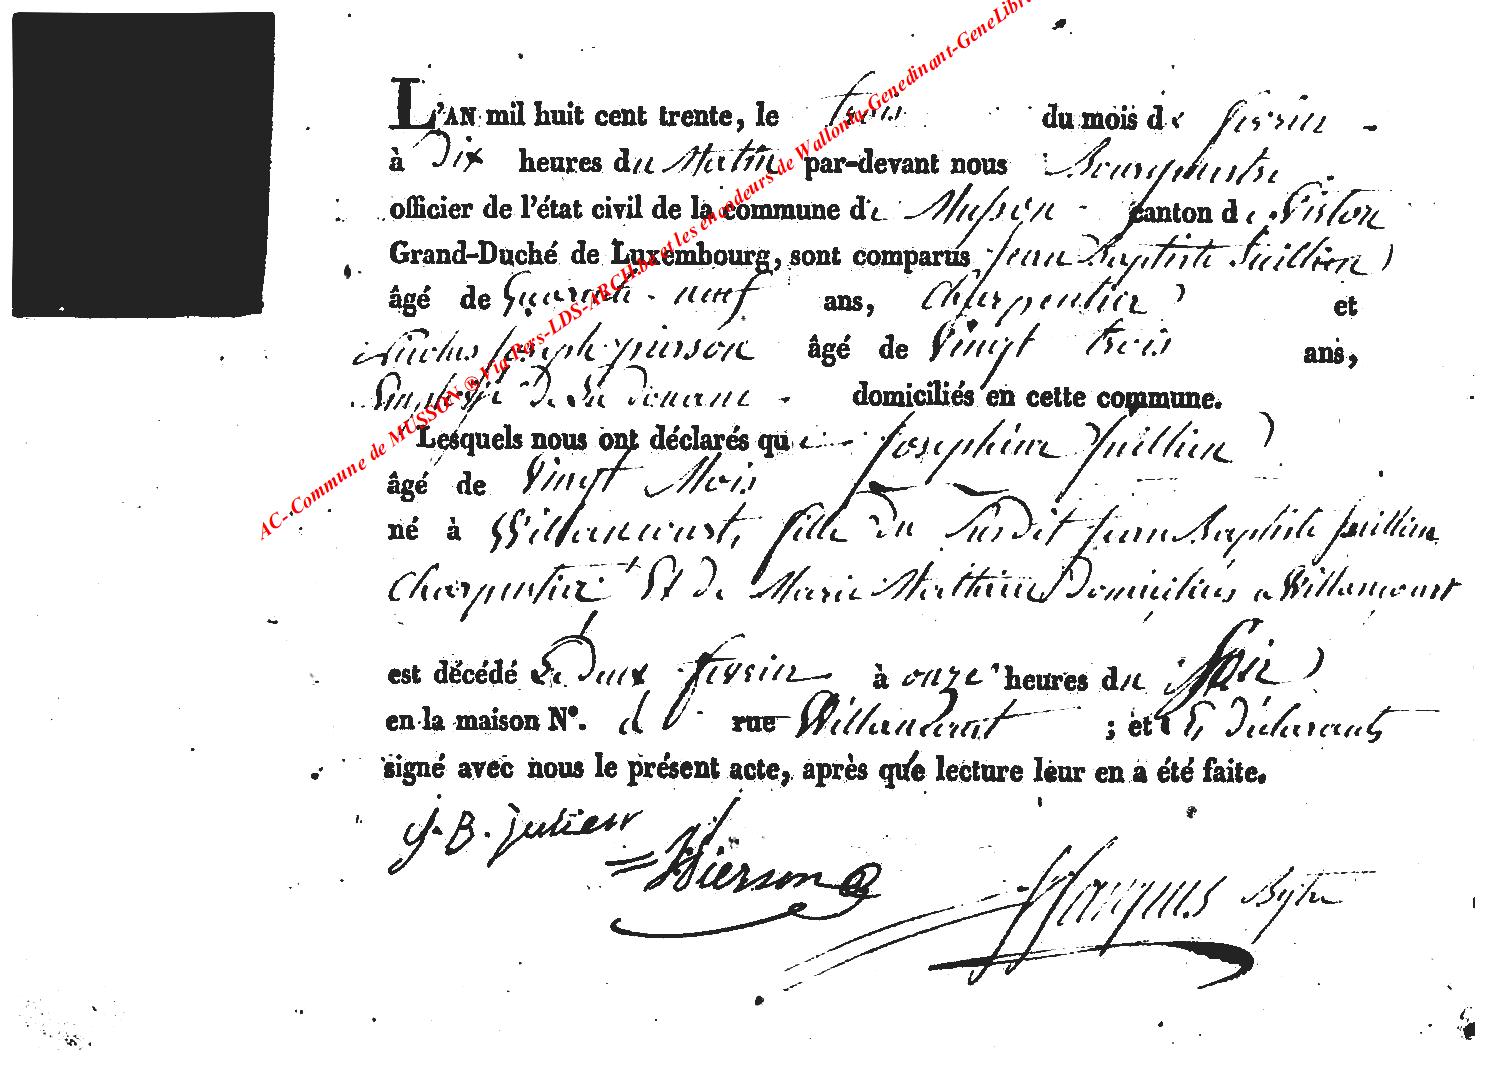 L'AN mil huit cent trente, le trois du mois de fevrier
à Dix heures du Matin par-devant nous Bourgmestre
officier de l'état civil de la commune de Musson canton de Virton
Grand-Duché de Luxembourg, sont comparus Jean Baptiste Juillien
âgé de Quarante-neuf ans, Charpentier et
Nicolas Joseph pierson âgé de Vingt trois ans,
Employé De La douane domiciliés en cette commune.
Lesquels nous ont déclarés que Josephine Juillien
âgé de Vingt Mois
né à Willancourt, fille du Susdit Jean Baptiste Juillien
Charpentier Et de Marie Mathieu Domiciliés a Willancourt
est décédé Le Deux fevrier à onze heures du Soir
en la maison N°. d rue Willancourt ; et Les déclarants
signé avec nous le présent acte, après que lecture leur en a été faite.
J. B. Julien
Pierson
Jacques
AC-.Commune de MUSSON ® Via Pers-LDS-ARCH.be et les encodeurs de Wallonia-Genedinant-GeneLibre